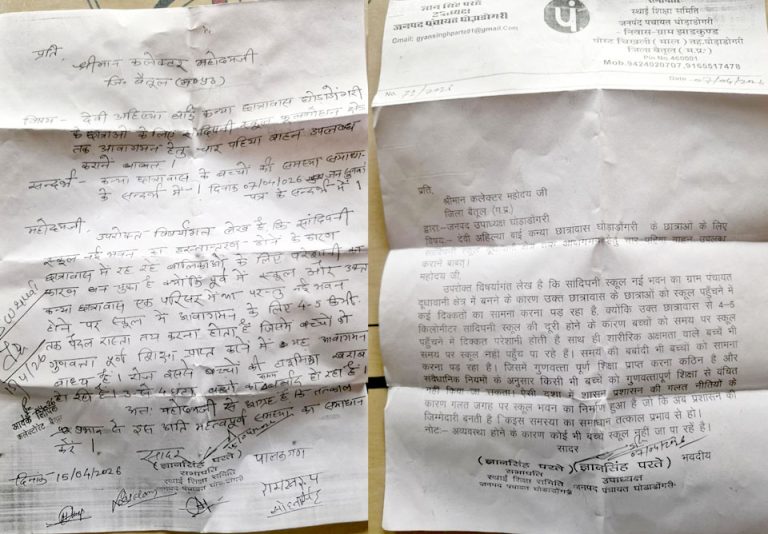 प्रति,
श्रीमान कलेक्टर महोदयजी
जि. बैतूल (म०प्र०)
विषय - देवी अहिल्या बाई कन्या छात्रावास घोडाडोंगरी
के छात्राओ के लिए सांदिपनी स्कूल
तक आवागमन हेतु चार पहिया वाहन उपलब्ध
कराने बाबत ।
सन्दर्भ - कन्या छात्रावास के बच्चों की समस्या समाधान
के सन्दर्भ में - । दिनाक 07/04/026
पत्र के सन्दर्भ में ।
महोदयजी,
उपरोक्त विषयांगत लेख है कि सांदिपनी
स्कूल नई भवन का हस्तान्तरण होने के कारण
छात्रावास में रह रहे बालिकाओं के लिए परेशानी का
कारण बन चुका है क्योंकि पूर्व में स्कूल और उक्त
कन्या छात्रावास एक परिसर में था परन्तु नई भवन
होने पर स्कूल में आवागमन के लिए 4-5 किमी.
तक पैदल रास्ता तय करना होता है जिसमे बच्चों को
गुणवत्ता पूर्ण शिक्षा प्राप्त करने में यह आवागमन
बाध्य है । रोज इससे बच्चों की
हो रही है । 3 से 4 घण्टा बच्चों का बर्बाद हो रहा है ।
अतः महोदयजी से आग्रह है कि तत्काल
प्रभाव से इस अति महत्वपूर्ण समस्या का समाधान
करे ।
सादर
दिनांक- 15/04/2026
(ज्ञानसिंह परते)
सभापति
स्थाई शिक्षा समिति
जनपद पंचायत घोड़ाडोंगरी
पालकगण
रामस्वरूप
ज्ञान सिंह परते
उपाध्यक्ष
जनपद पंचायत घोड़ाडोंगरी
Gmail: gyansinghparte01@gmail.com
सभापति
स्थाई शिक्षा समिति
जनपद पंचायत घोड़ाडोंगरी
- निवास-ग्राम झाडकुण्ड
पोस्ट चिखली (माल) तह.घोड़ाडोंगरी
जिला बैतूल (म.प्र.)
Pin No 460001
Mob.9424029707, 9165517478
No. 22/2026
Date 07/04/2026
प्रति,
श्रीमान कलेक्टर महोदय जी
जिला बैतूल (म.प्र.)
द्वारा:-जनपद उपाध्यक्ष घोडाडोंगरी
विषय:- देवी अहिल्या बाई कन्या छात्रावास घोडाडोंगरी के छात्राओं के लिए
कराने बाबत्।
महोदय जी,
उपरोक्त विषयांगत लेख है कि सांदिपनी स्कूल नई भवन का ग्राम पंचायत
दूधावानी क्षेत्र में बनने के कारण उक्त छात्रावास के छात्राओं को स्कूल पहुँचने में
कई दिक्कतों का सामना करना पड़ रहा है, क्योंकि उक्त छात्रावास से 4–5
किलोमीटर सांदिपनी स्कूल की दूरी होने के कारण बच्चों को समय पर स्कूल
पहुंचने में दिक्कत परेशानी होती है साथ ही शारीरिक अक्षमता वाले बच्चें भी
समय पर स्कूल नही पहुँच पा रहे हैं। समय की बर्बादी भी बच्चों को सामना
करना पड़ रहा है। जिसमें गुणवत्ता पूर्ण शिक्षा प्राप्त करना कठिन है और
संवैधानिक नियमों के अनुसार किसी भी बच्चें को गुणवत्तापूर्ण शिक्षा से वंचित
नहीं किया जा सकता। ऐसी दशा शासन प्रशासन की गलत नीतियों के
कारण गलत जगह पर स्कूल भवन का निर्माण हुआ है जो कि अब प्रशासन की
जिम्मेदारी बनती है कि इस समस्या का समाधान तत्काल प्रभाव से हो।
नोट:- अव्यवस्था होने के कारण कोई भी बच्चे स्कूल नही जा पा रहे हैं।
सादर
07/04/2026
भवदीय
(ज्ञानसिंह परते)
सभापति
स्थाई शिक्षा समिति
जनपद पंचायत घोड़ाडोंगरी
(ज्ञानसिंह परते)
उपाध्यक्ष
जनपद पंचायत घोडाडोंगरी